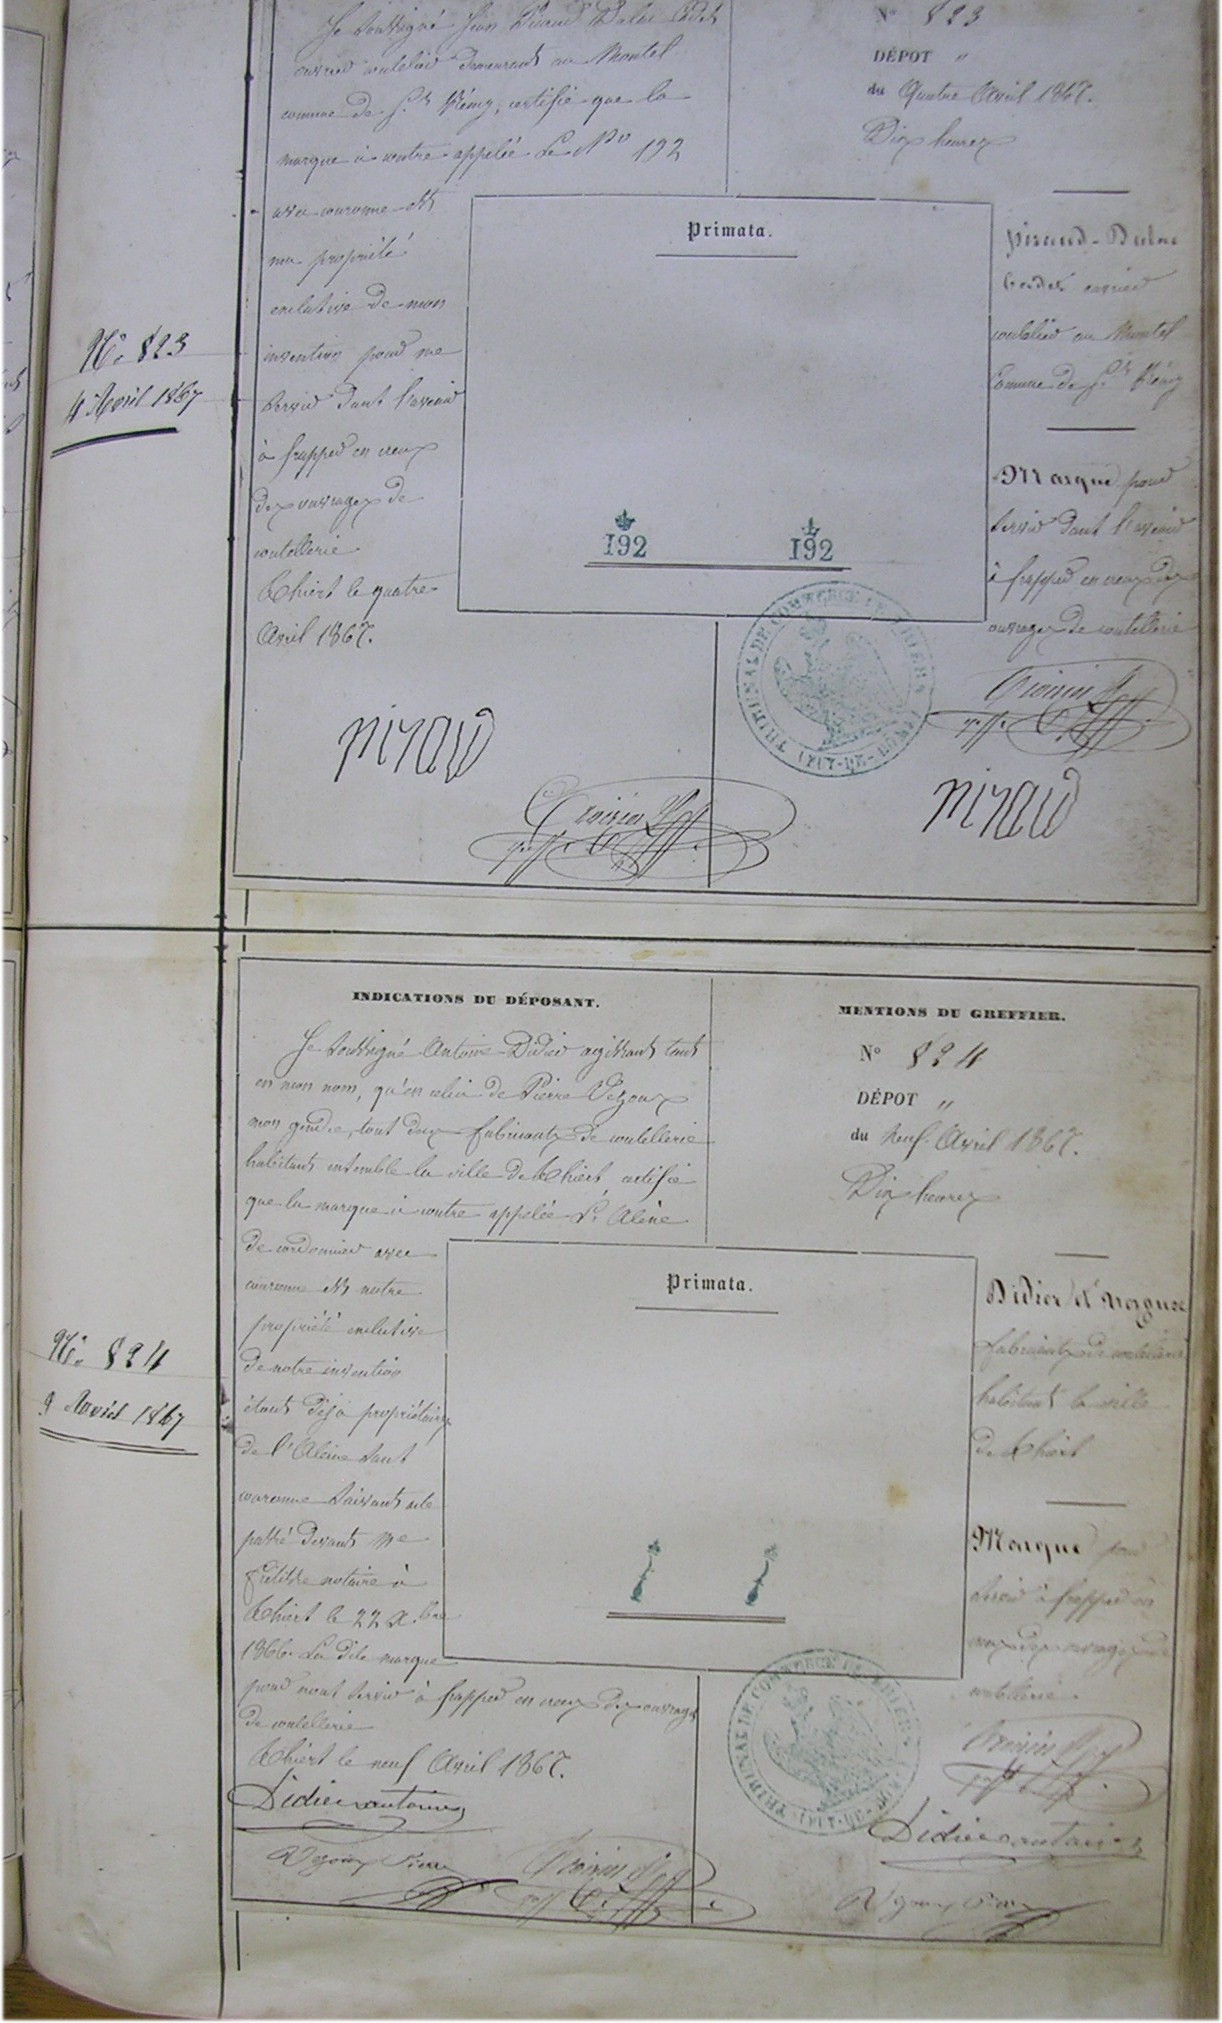 Je soussigné Jean Piraud Dulac Cadet
ouvrier coutelier demeurant au Montel
commune de St Rémy, certifie que la
marque ci contre appelée Le No 192
avec couronne est
ma propriété
exclusive de mon
invention pour me
servir dans l'avenir
à frapper en creux
des ouvrages de
coutellerie
Thiers le quatre
Avril 1867.
piraud
No 823
4 Avril 1867
N° 823
DÉPOT "
du Quatre Avril 1867.
Dix heures
Primata.
192 192
piraud-Dulac
Cadet ouvrier
coutelier au Montel
Commune de St Rémy
Marque pour
servir dans l'avenir
à frapper en creux des
ouvrages de coutellerie
TRIBUNAL DE COMMERCE DE THIERS
(PUY-DE-DÔME)
piraud
INDICATIONS DU DÉPOSANT.
Je soussigné Antoine Didier agissant tant
en mon nom, qu'en celui de Pierre
mon gendre, tout deux fabricants de coutellerie
habitants ensemble la ville de Thiers, certifie
que la marque ci contre appelée L' Alène
de cordonnier avec
couronne est notre
propriété exclusive
de notre invention
étant déjà propriétaire
de l'Alène sans
couronne suivant acte
passé devant Me
notaire à
Thiers le 22 X.bre
1866. La dite marque
pour nous servir à frapper en creux des ouvrages
de coutellerie
Thiers le neuf Avril 1867.
Didier antoine
No 824
9 Avril 1867
MENTIONS DU GREFFIER.
N° 824
DÉPOT "
du neuf Avril 1867.
Dix heures
Primata.
Didier et
fabricants de coutellerie
habitant la ville
de Thiers
Marque pour
servir à frapper en
creux des ouvrages de
coutellerie.
TRIBUNAL DE COMMERCE DE THIERS
(PUY-DE-DÔME)
Didier antoine